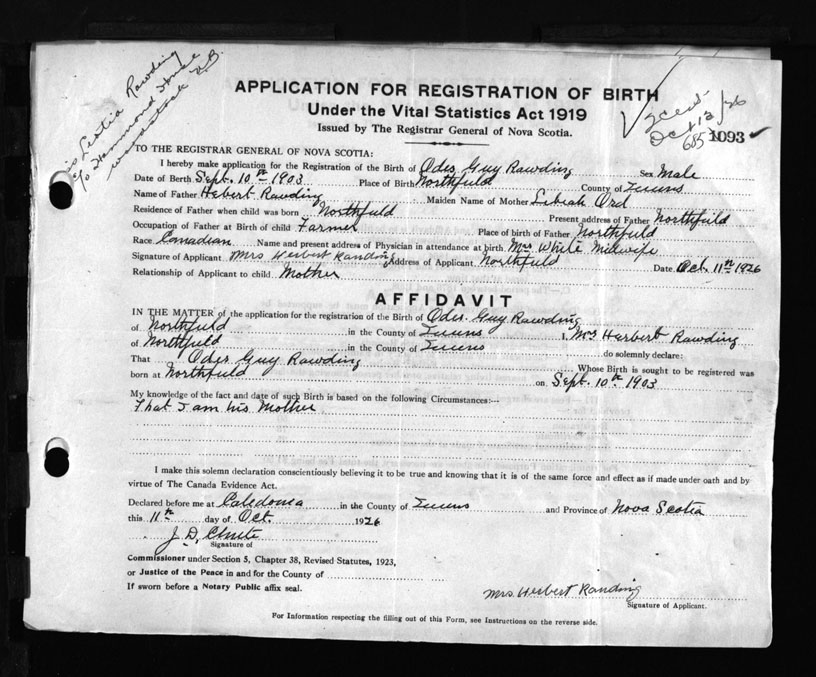 Lestia Rawding
c/o Hammond House
Woodstock N.B.
APPLICATION FOR REGISTRATION OF BIRTH
Under the Vital Statistics Act 1919
Issued by The Registrar General of Nova Scotia.
Oct 12/26
685 1093
TO THE REGISTRAR GENERAL OF NOVA SCOTIA:
I hereby make application for the Registration of the Birth of Odes Guy Rawding Sex Male
Date of Birth Sept. 10th 1903 Place of Birth Northfield County of Queens
Name of Father Hebert Rawding Maiden Name of Mother Ord
Residence of Father when child was born Northfield Present address of Father Northfield
Occupation of Father at Birth of child Farmer Place of birth of Father Northfield
Race Canadian Name and present address of Physician in attendance at birth. Mrs White Midwife
Signature of Applicant Mrs Herbert Randing Address of Applicant. Northfield Date. Oct. 11th 1926
Relationship of Applicant to child. Mother
AFFIDAVIT
IN THE MATTER of the application for the registration of the Birth of Odes. Guy Rawding
of Northfield in the County of Queens I, Mrs Herbert Rawding
of Northfield in the County of Queens do solemnly declare:
That Odes Guy Rawding Whose Birth is sought to be registered was
born at Northfield on Sept. 10th 1903
My knowledge of the fact and date of such Birth is based on the following Circumstances:--
That I am his Mother
I make this solemn declaration conscientiously believing it to be true and knowing that it is of the same force and effect as if made under oath and by
virtue of The Canada Evidence Act.
Declared before me at Caledonia in the County of Queens and Province of Nova Scotia
this 11th day of Oct. 1926
J. D. Chute
Signature of
Commissioner under Section 5, Chapter 38, Revised Statutes, 1923,
or Justice of the Peace in and for the County of
If sworn before a Notary Public affix seal.
Mrs. Herbert Randing
Signature of Applicant.
For Information respecting the filling out of this Form, see Instructions on the reverse side.